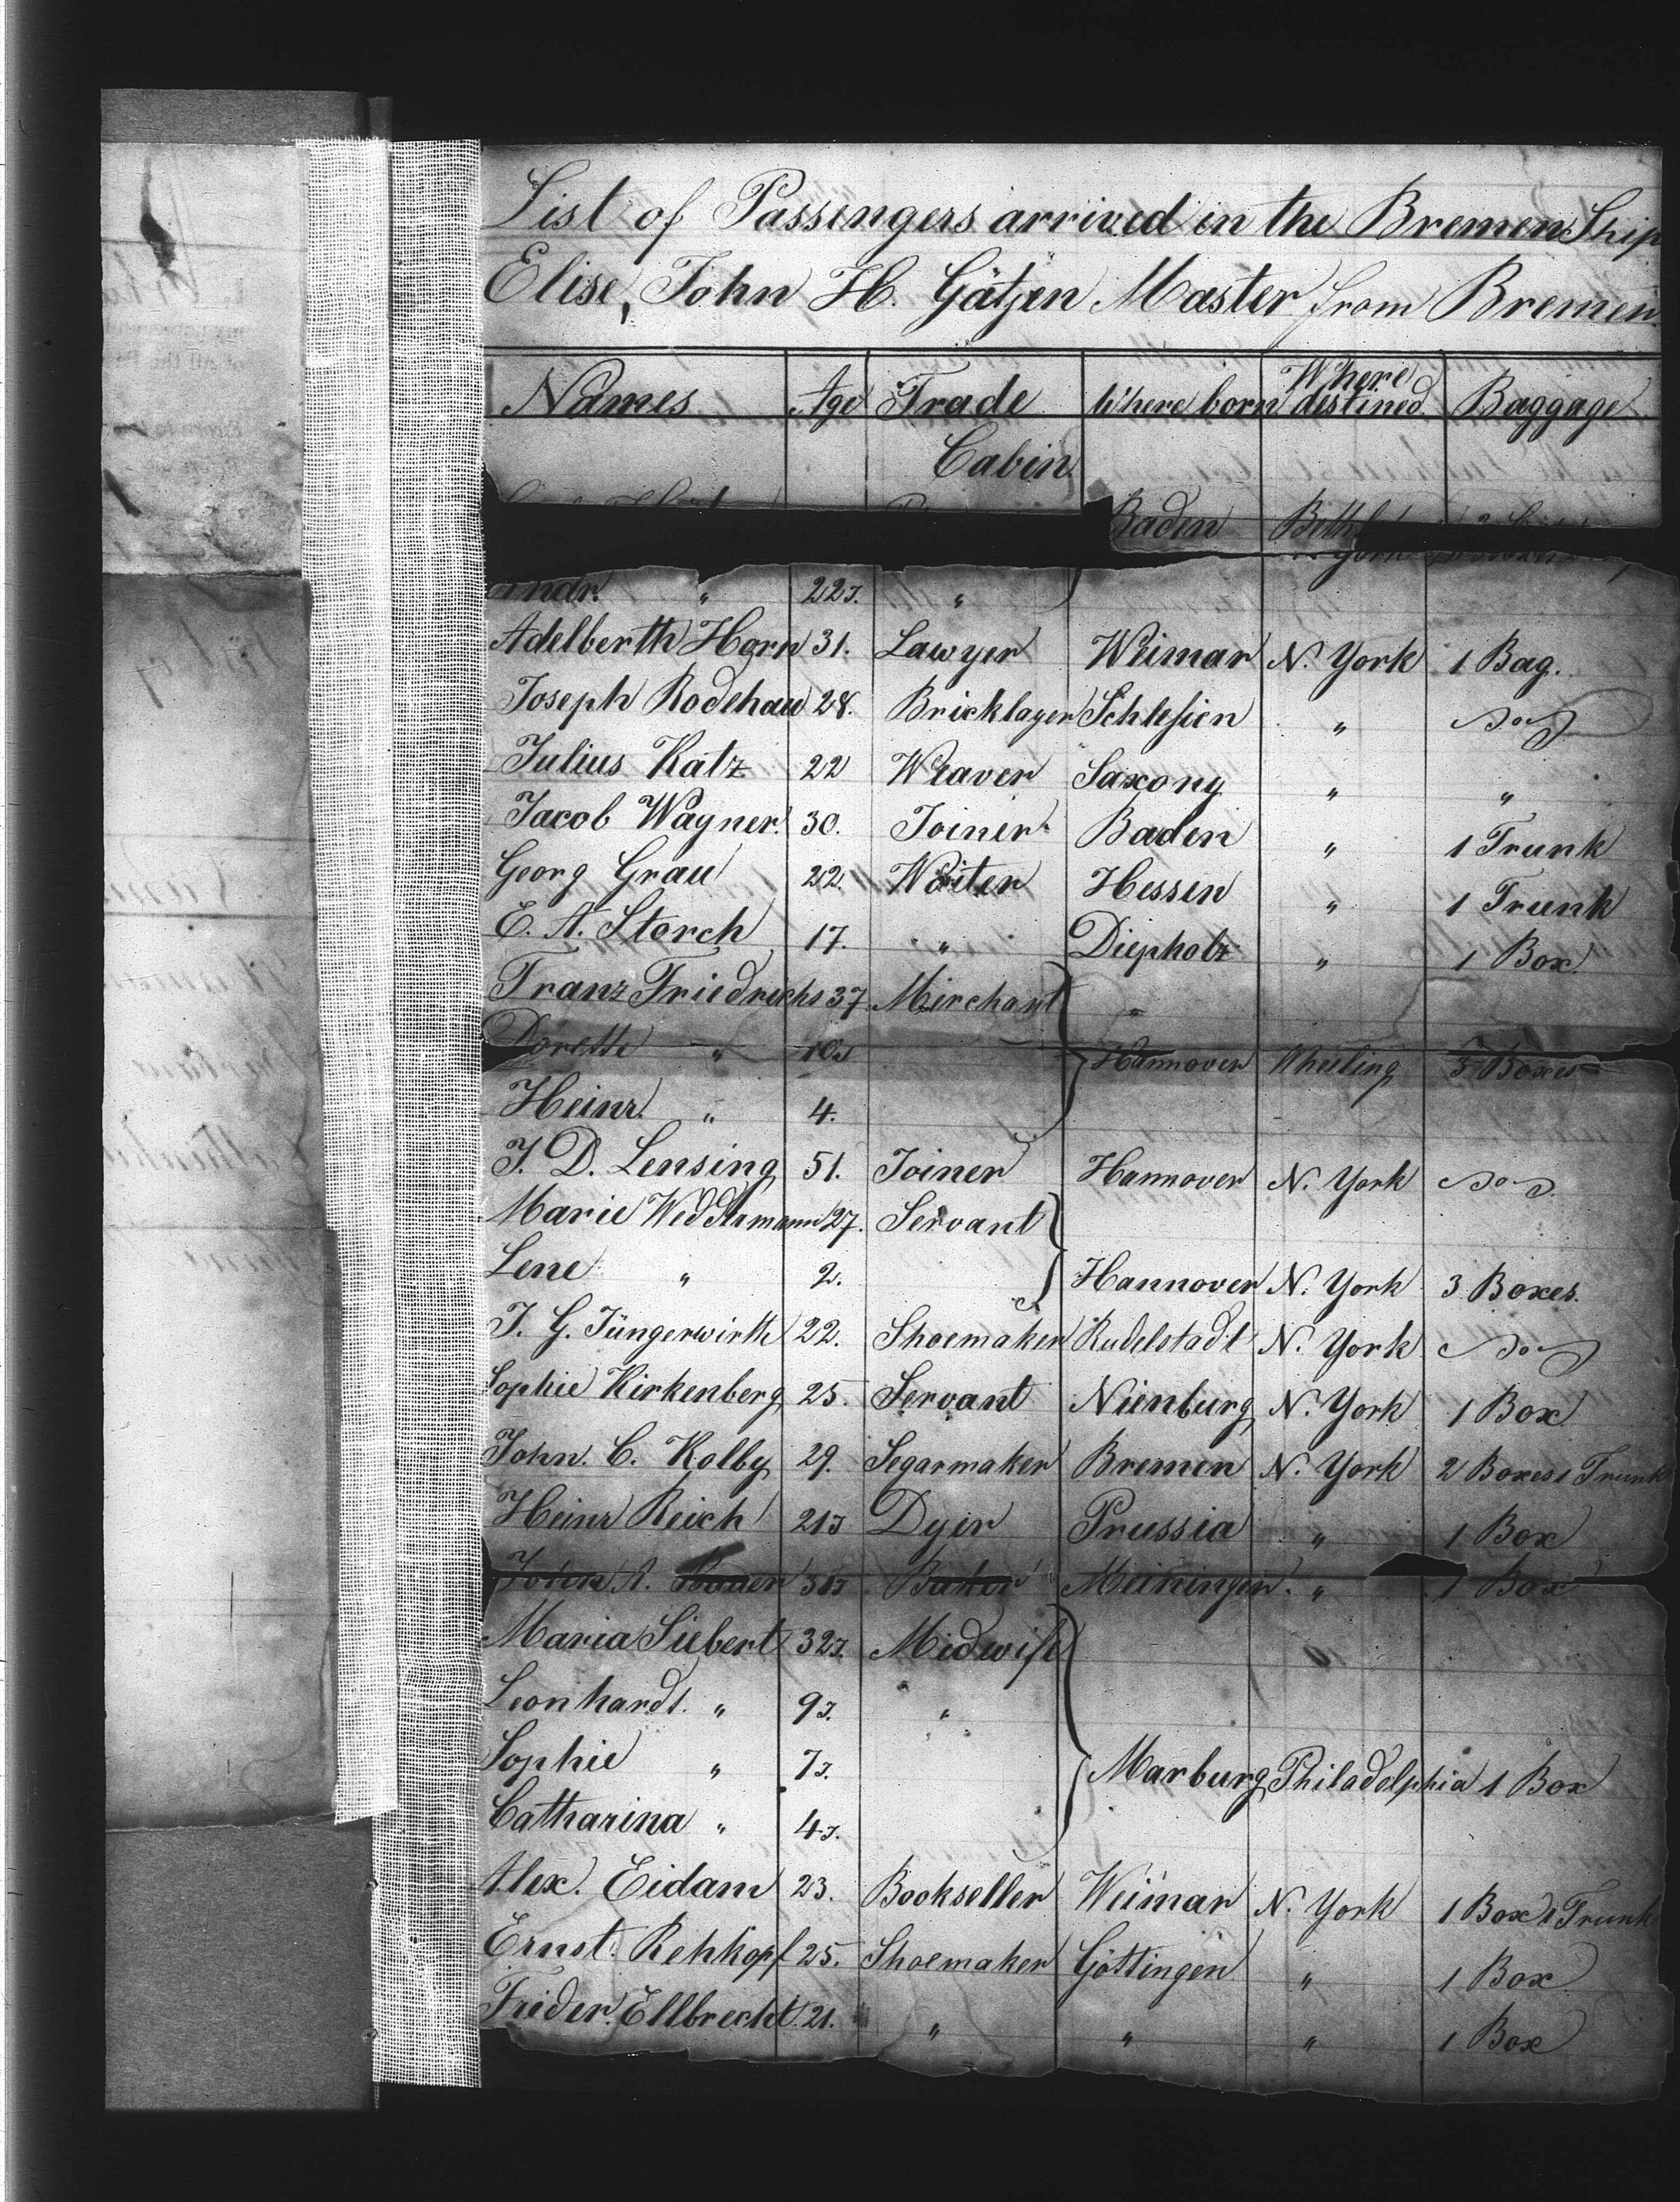 List of Passengers arrived in the Bremen Ship
Elise, John H. Gätjen Master from Bremen
Names Age Trade Where born Where destined Baggage
Cabin
Baden
York
Andr. " 22 J. "
Adelberth Horn 31. Lawyer Weimar N. York 1 Bag.
Joseph Rodehau 28. Bricklayer Schlesien " do
Julius Katz 22 Weaver Saxony " "
Jacob Wagner. 30. Joiner Baden " 1 Trunk
Georg Grau 22. Waiter Hessen " 1 Trunk
E. A. Storch 17. " Diepholz " 1 Box
Franz Friedrichs 37. Merchant "
Dorette " 10 J Hannover Wheeling 3 Boxes
Heinr. " 4.
J. D. Lensing 51. Joiner Hannover N. York do
Marie Weddermann 27. Servant
Lene " 2. Hannover N. York 3 Boxes.
J. G. Jüngerwirth 22. Shoemaker Rudelstadt N. York do
Sophie Kirkenberg 25. Servant Nienburg N. York 1 Box
John. C. Kolby 29. Segarmaker Bremen N. York 2 Boxes 1 Trunk
Heinr Reich 21 J Dyer Prussia " 1 Box
John A. Meiningen. " 1 Box
Maria Siebert 32 J. Midwife
Leonhardt. " 9 J. "
Sophie " 7 J. Marburg Philadelphia 1 Box
Catharina " 4 J.
Alex. Eidam 23. Bookseller Weimar N. York 1 Box 1 Trunk
Ernst. Rehkopf 25. Shoemaker Göttingen " 1 Box
Frieder. Ellbrecht. 21. " " " 1 Box